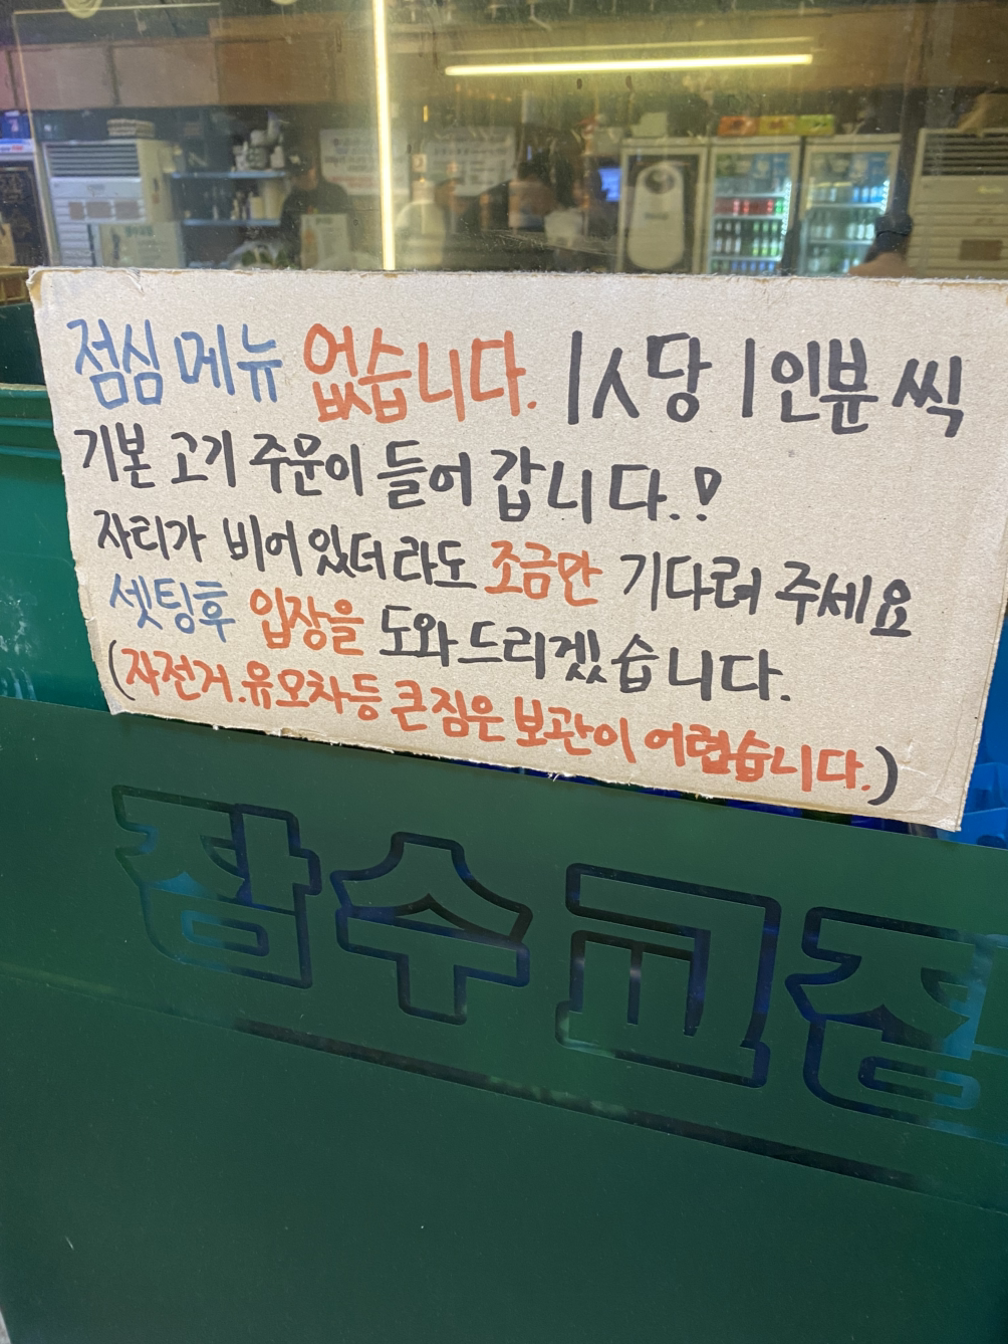 점심 메뉴 없습니다. 1人당 1인분 씩
기본 고기 주문이 들어 갑니다.!
자리가 비어 있더라도 조금만 기다려 주세요
셋팅후 입장을 도와드리겠습니다.
(자전거.유모차등 큰짐은 보관이 어렵습니다.)
장수교집